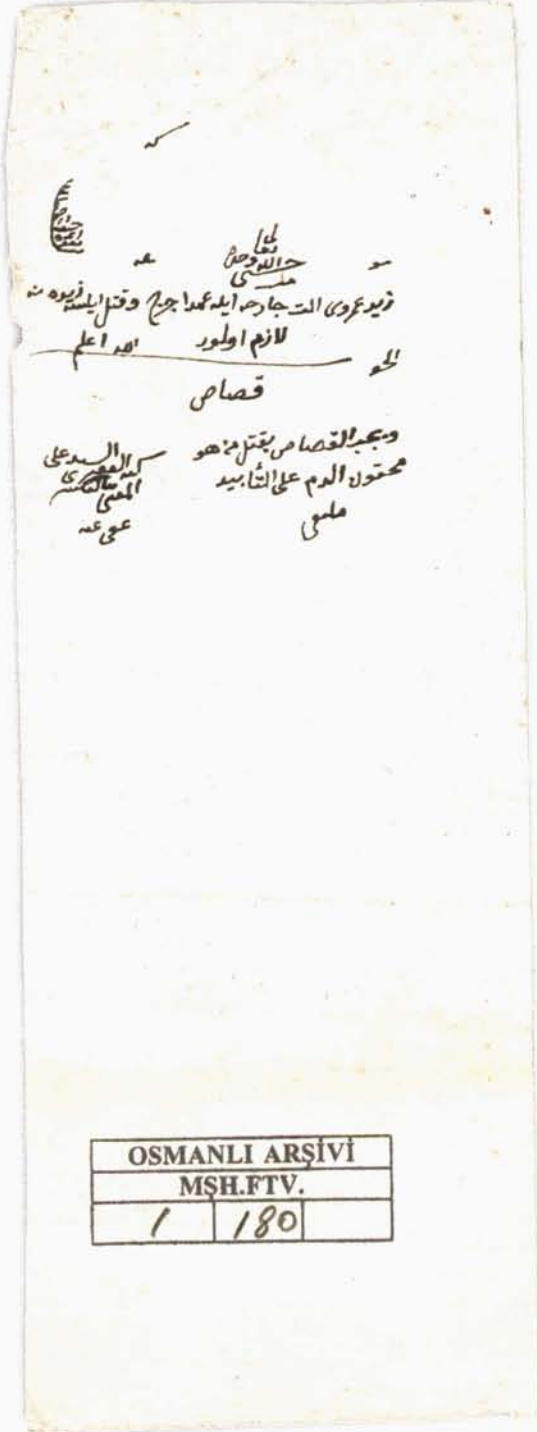 زيد عمروى آلت جارحه ايله عمدا جرح وقتل ايلسه زيده نه
لازم اولور
الله اعلم
الجو
قصاص
ويجب القصاص بقتل من هو
محقون الدم على التأبيد
ملتقى
كتبه الفقير السيد على
المفتى
عفى عنه
OSMANLI ARŞİVİ
MŞH.FTV.
1 180